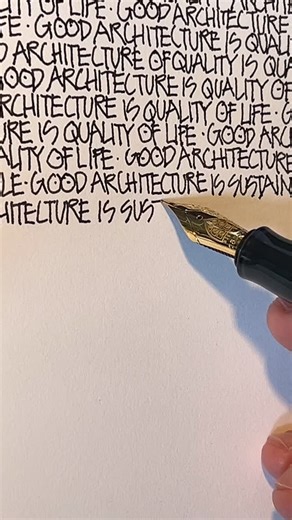 LITY OF LIFE · GOOD ARCHITECTURE
FE · GOOD ARCHITECTURE IS QUALI
D ARCHITECTURE OF QUALITY IS QUA
GOOD ARCHITECTURE IS QUALITY OF
RCHITECTURE IS QUALITY OF LIFE · G
URE IS QUALITY OF LIFE · GOOD ARC
ALITY OF LIFE · GOOD ARCHITECTURE
LE · GOOD ARCHITECTURE IS SUSTAIN
HITECTURE IS SUS